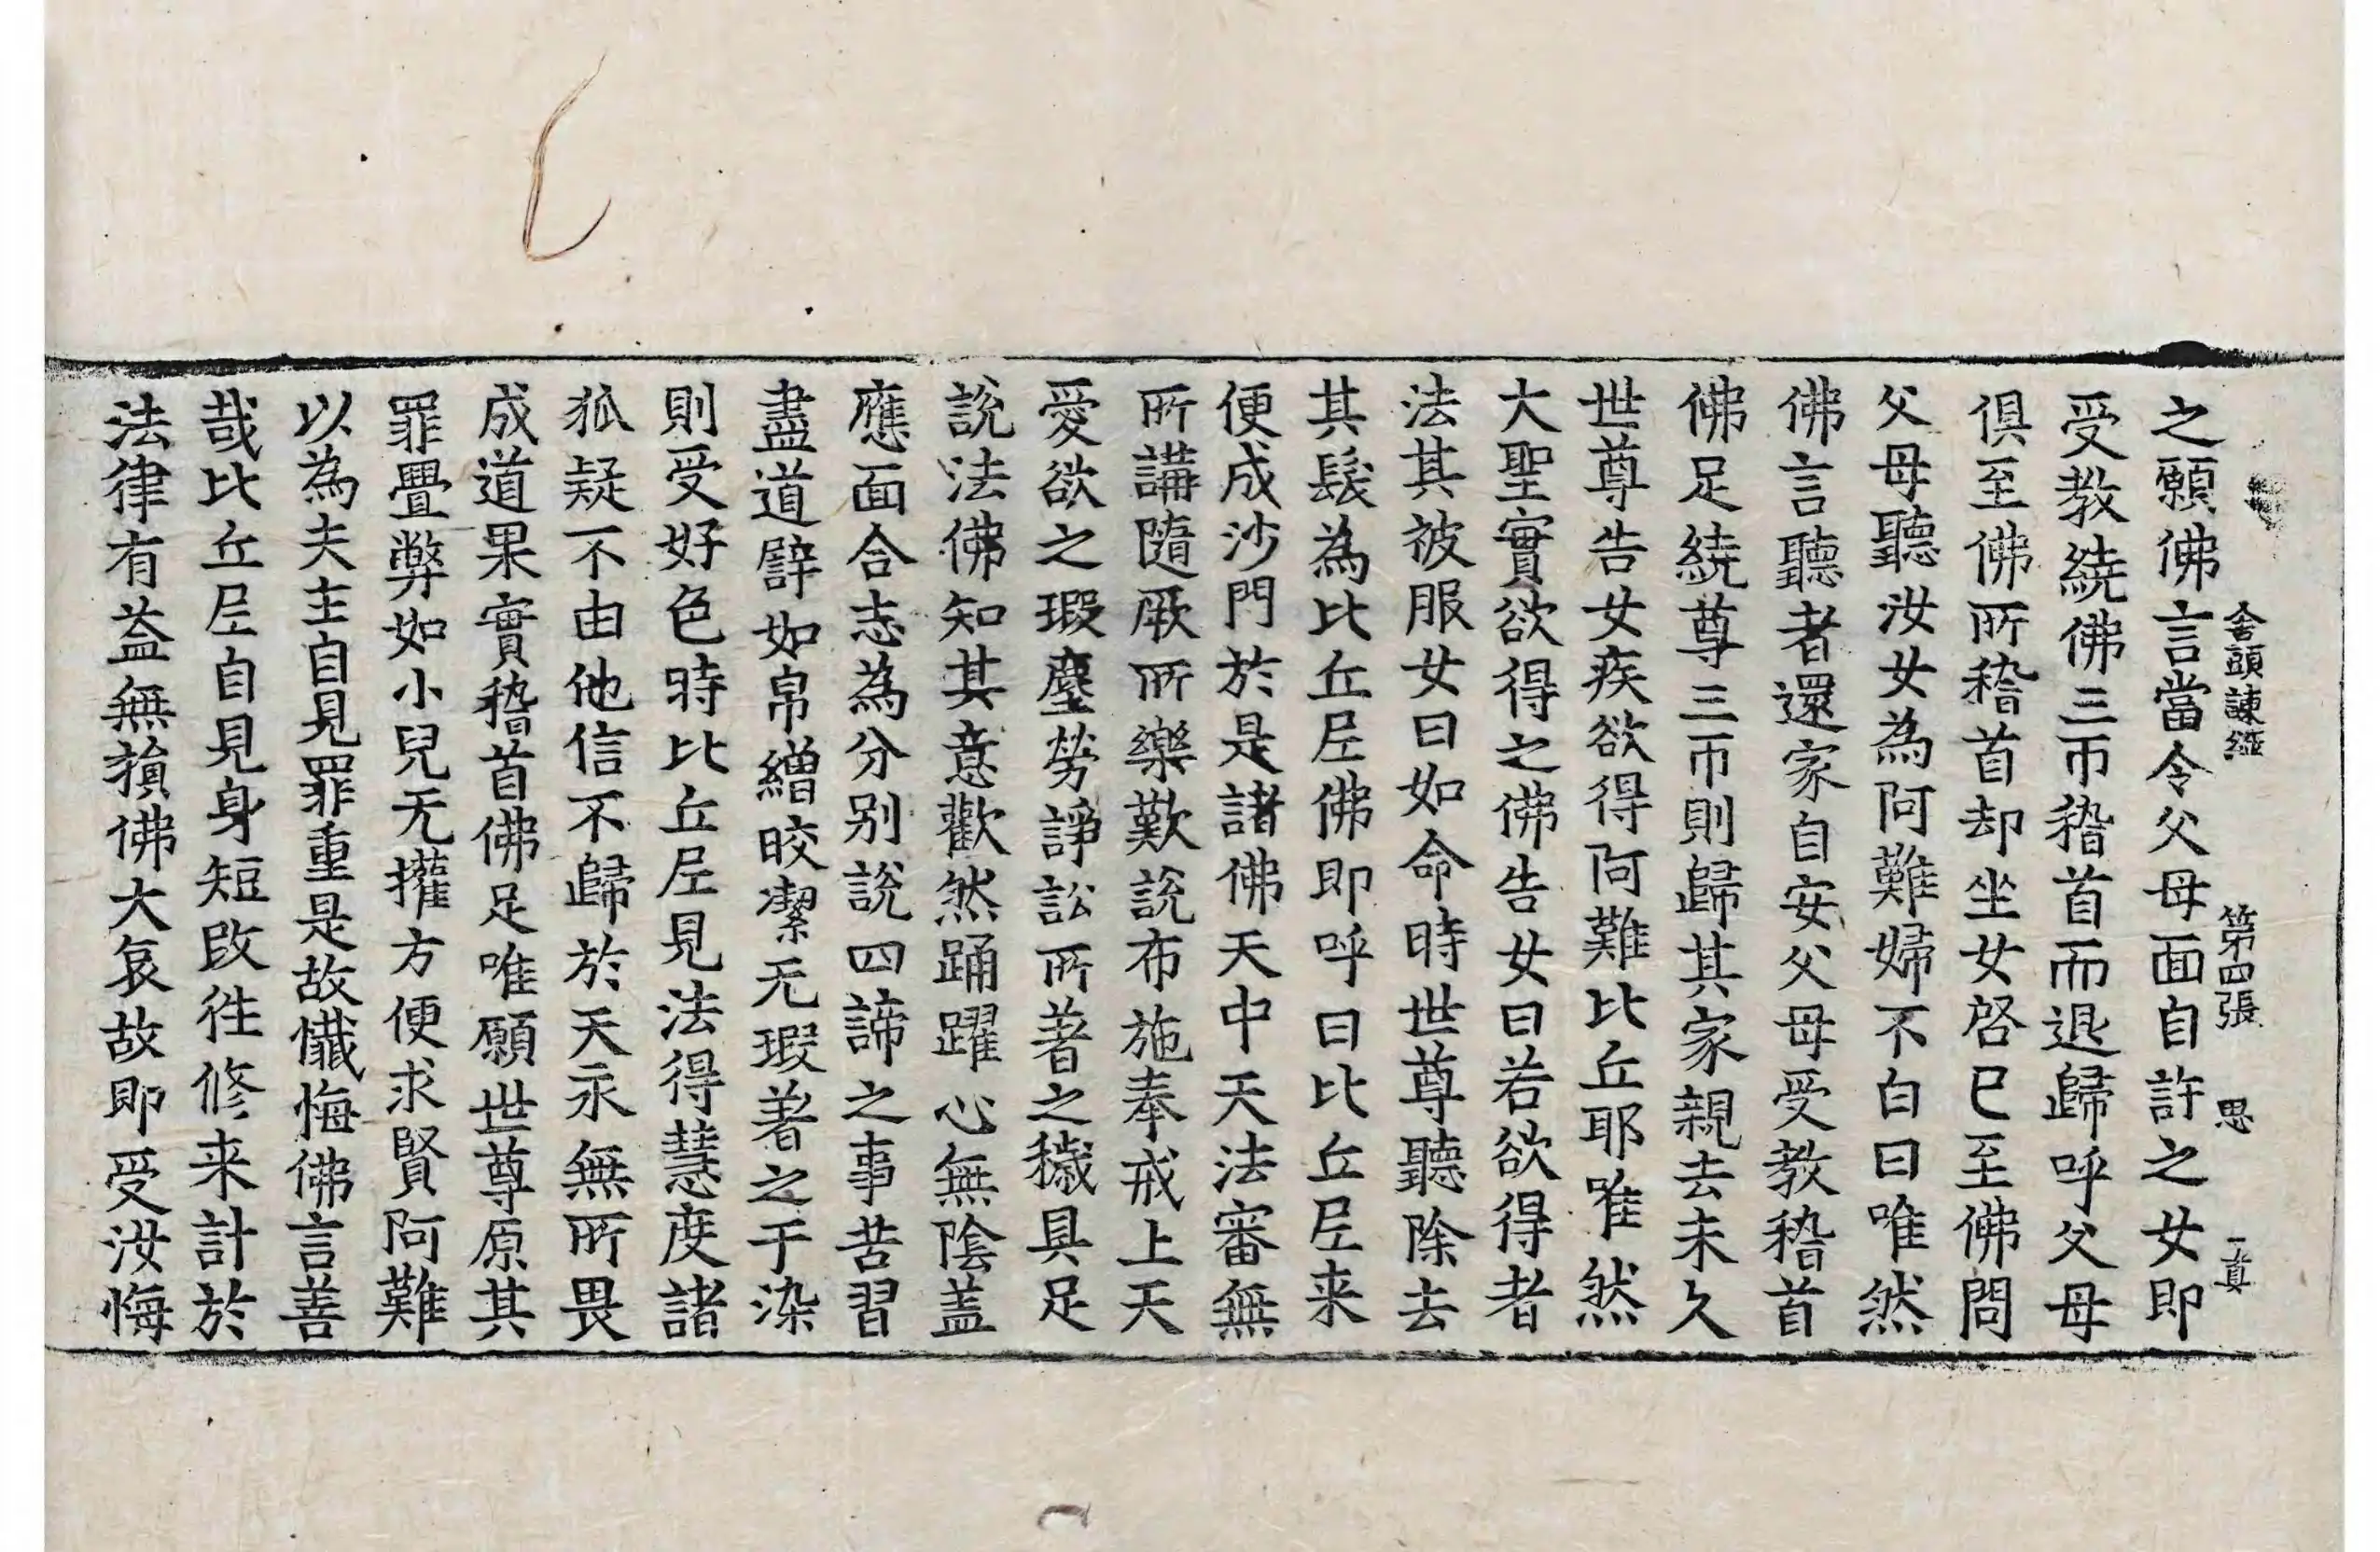 舍頭諫經　第四張　思　一真
之願佛言當令父母面自許之女即
受教繞佛三帀稽首而退歸呼父母
俱至佛所稽首却坐女啓已至佛問
父母聽汝女為阿難婦不白曰唯然
佛言聽者還家自安父母受教稽首
佛足繞尊三帀則歸其家親去未久
世尊告女疾欲得阿難比丘耶唯然
大聖實欲得之佛告女曰若欲得者
法其被服女曰如命時世尊聽除去
其髮為比丘尼佛即呼曰比丘尼来
便成沙門於是諸佛天中天法審無
所講隨厥所樂歎說布施奉戒上天
愛欲之瑕塵勞諍訟所著之穢具足
說法佛知其意歡然踊躍心無陰蓋
應面合志為分别說四諦之事苦習
盡道譬如帛繒晈潔无瑕著之于染
則受好色時比丘尼見法得慧度諸
狐疑不由他信不歸於天永無所畏
成道果實稽首佛足唯願世尊原其
罪舋弊如小兒无㩲方便求賢阿難
以為夫主自見罪重是故懺悔佛言善
哉比丘尼自見身短改往修来計於
法律有益無損佛大哀故即受汝悔